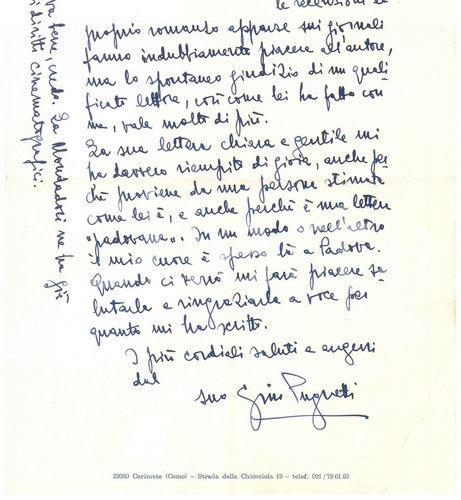 le recensioni al
proprio romanzo apparse sui giornali
fanno indubbiamente piacere all'autore,
ma lo spontaneo giudizio di un quali
ficato lettore, così come lei ha fatto con
me, vale molto di più.
La sua lettera chiara e gentile mi
ha davvero riempito di gioia, anche per
ché proviene da una persona stimata
come lei è, e anche perché è una lettera
"padovana". In un modo o nell'altro
il mio cuore è spesso là a Padova.
Quando ci verrò mi farà piacere sa
lutarla e ringraziarla a voce per
quanto mi ha scritto.
I più cordiali saluti e auguri
dal
suo Gino Pugnetti
va bene, credo. La Mondadori ne ha già
i diritti cinematografici.
22060 Carimate (Como) - Strada della Chiocciola 19 - telef. 031/79 01 63